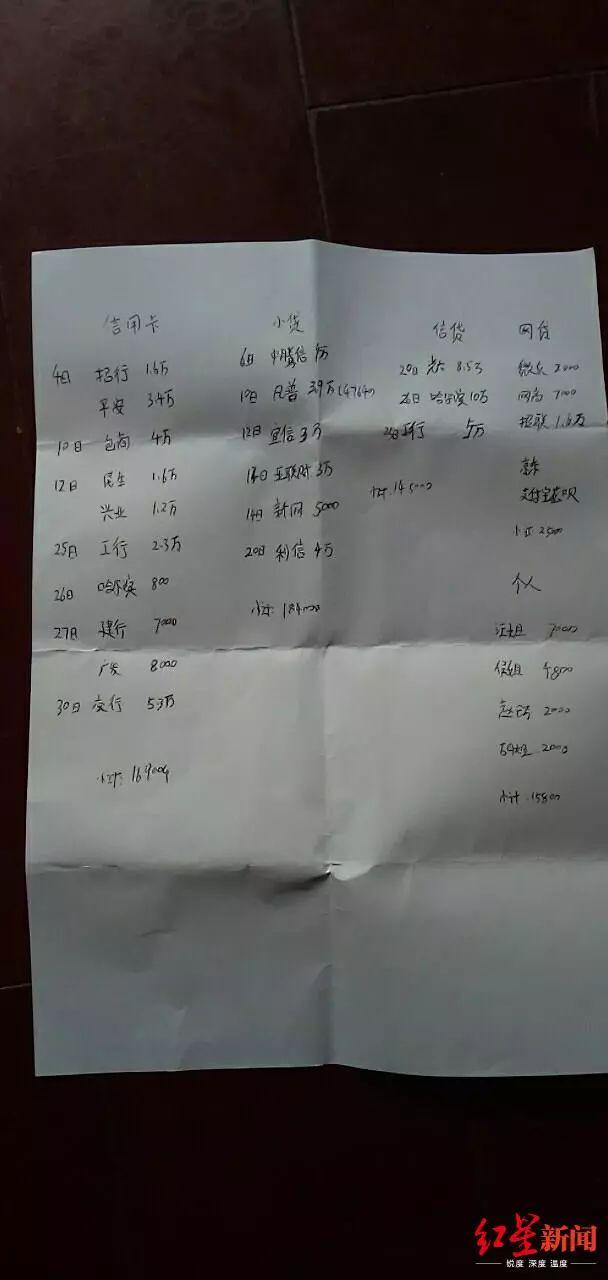 信用卡
4日 招行 1.6万
平安 3.4万
10日 包商 4万
12日 民生 1.6万
兴业 1.2万
25日 工行 2.3万
26日 哈尔滨 800
27日 建行 7000
广发 8000
30日 交行 5.3万
小计: 169000
小贷
6日 中腾信
10日 凡普 3.9万 (4764)
12日 宜信 3万
14日 互联财 3万
14日 新网 5000
20日 利信 4万
小计: 184000
信贷
20日 光大 8.5万
26日 哈尔滨 10万
工行 5万
小计. 145000
网贷
微众 2000
网商 7000
招联 1.6万
京东
支付宝花呗
小计 2500
个人
汪姐 7000
侯姐 4800
2000
胡姐 2000
小计. 15800
红星新闻
锐度 深度 温度